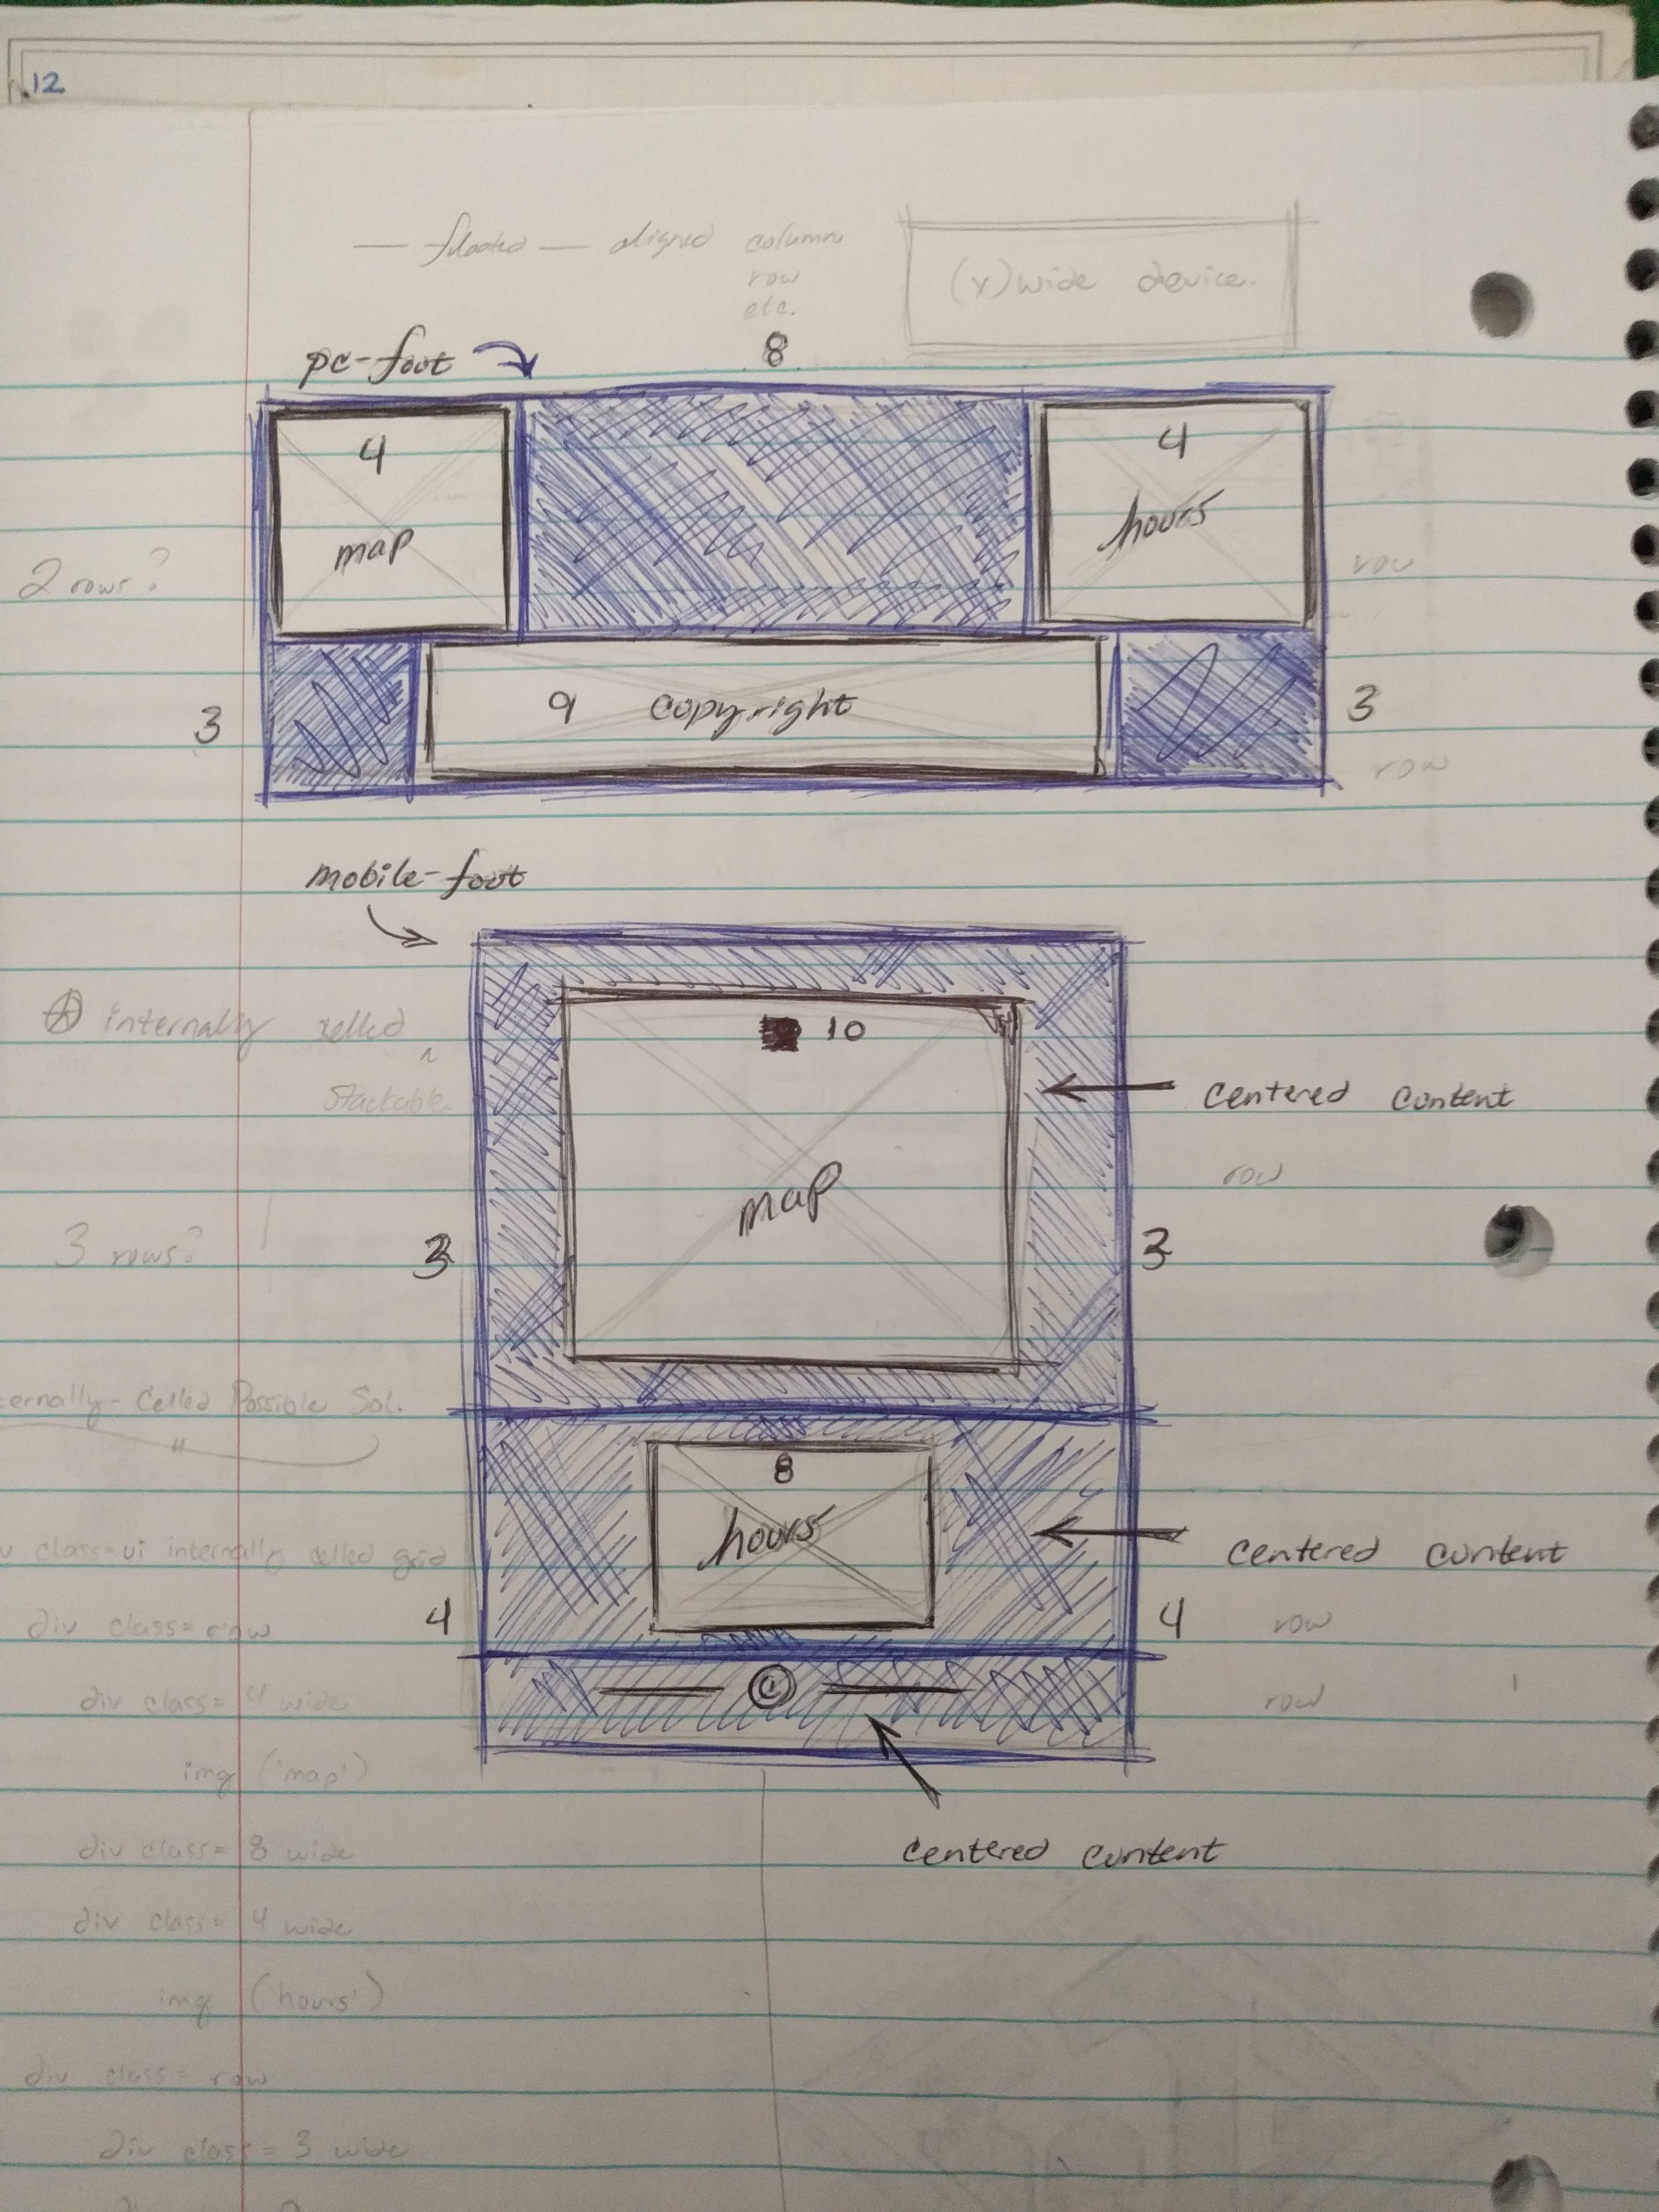 12
— floated — aligned column
row
etc.
(x) wide device.
8
pc-foot
4
map
4
hours
2 rows?
row
3
9 copyright
3
row
mobile-foot
internally celled
^
stackable
10
centered content
map
row
3
3
3 rows?
ternally-Celled Possible Sol.
"
8
hours
centered content
class=ui internally celled grid
4
4
row
div class=row
©
row
div class= 4 wide
img ('map')
centered content
div class= 8 wide
div class= 4 wide
img ('hours')
div class= row
div class= 3 wide